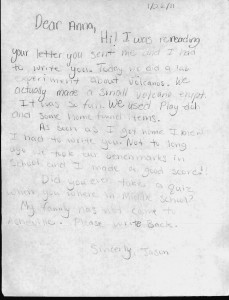 Dear Anna,
Hi! I was rereading
your letter you sent me and I had
to write you. Today we did a lab
experiment about volcanos. We
actually made a small volcano erupt.
It was so fun. We used Play doh
and some home found items.
As soon as I got home I knew
I had to write you. Not to long
ago we took our benchmarks in
School and I made a good score!
Did you ever take a quiz
when you where in Middle School?
My family has not came to
Please write back.
Sincerly, Jason